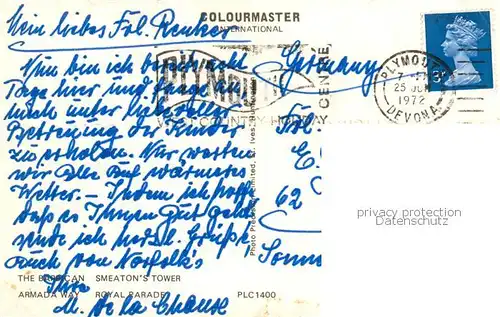 COLOURMASTER
INTERNATIONAL
Mein liebes Frl.
Nun bin ich bereits acht
Tage hier und fange an
mich unter liebevoller
Betreuung der Kinder
zu erholen. Nur warten
wir Alle auf wärmeres
Wetter. – Indem ich hoffe
daß es Ihnen gut geht
sende ich herzl. Grüße
auch von Norfolk's
Ihre
M. de la Chause
Germany
Frl
62
Sonn
PLYMOUTH
WEST COUNTRY HOLIDAY CENTRE
PLYMOUTH
25 JUN
1972
DEVON
THE BARBICAN SMEATON'S TOWER
ARMADA WAY ROYAL PARADE PLC1400
Limited, St. Ives
privacy protection
Datenschutz